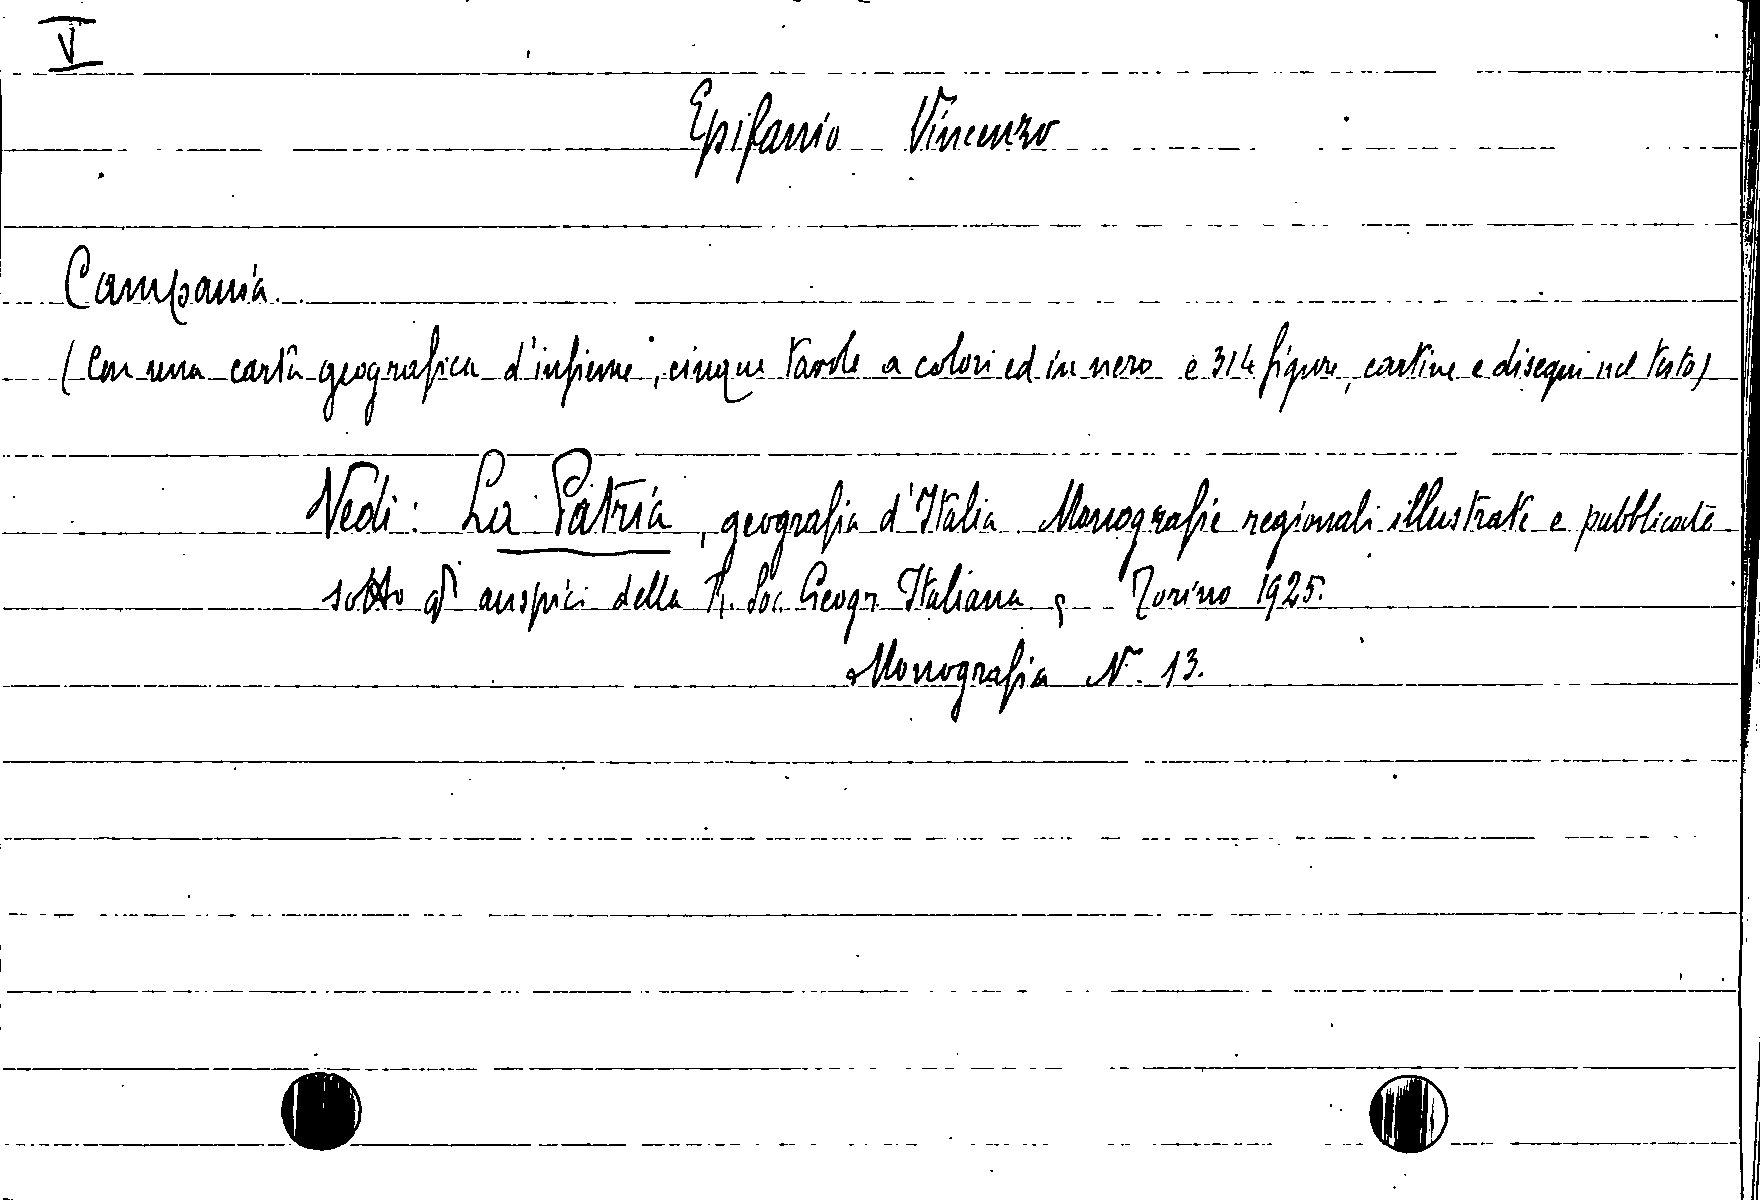 V
Epifanio Vincenzo
Campania.
(Con una carta geografica d'insieme, cinque tavole a colori ed in nero e 314 figure, cartine e disegni nel testo)
Vedi: La Patria, geografia d'Italia. Monografie regionali illustrate e pubblicate
sotto gli auspici della R. Soc. Geogr. Italiana, Torino 1925.
Monografia N. 13.